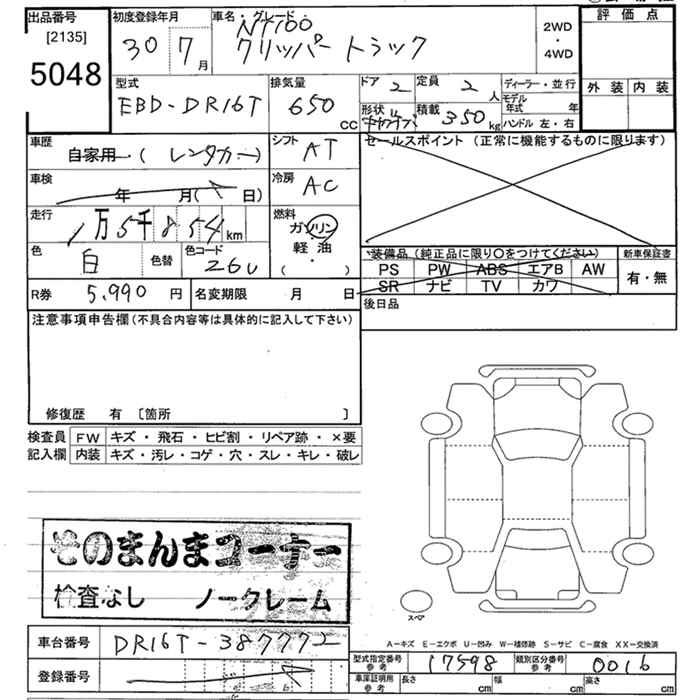 出品番号 [2135] 5048
初度登録年月 30 7月
車名・グレード NT100 クリッパートラック
2WD・4WD
評価点
外装 内装
型式 EBD-DR16T
排気量 650 CC
ドア 2
定員 2人
形状
積載 350 kg
ディーラー・並行
モデル年式 年
ハンドル 左・右
車歴 自家用・(レンタカー)
シフト AT
セールスポイント (正常に機能するものに限ります)
車検 年 月( 日)
冷房 AC
走行 1万5千854km
燃料 ガソリン 軽油 ( ・ )
色 白 色替 色コード 26U
装備品 (純正品に限り〇をつけてください)
PS PW ABS エアB AW
SR ナビ TV カワ
新車保証書 有・無
R券 5,990円
名変期限 月 日
後日品
注意事項申告欄(不具合内容等は具体的に記入して下さい)
修復歴 有 〔箇所 〕
検査員 FW キズ・飛石・ヒビ割・リペア跡・×要
記入欄 内装 キズ・汚レ・コゲ・穴・スレ・キレ・破レ
そのまんまコーナー
検査なし ノークレーム
スペア
A-キズ E-エクボ U-凹み W-補修跡 S-サビ C-腐食 XX-交換済
車台番号 DR16T-387772
登録番号
型式指定番号 参考 17598
類別区分番号 参考 0016
車庫証明用 参考 長さ cm 幅 cm 高さ cm